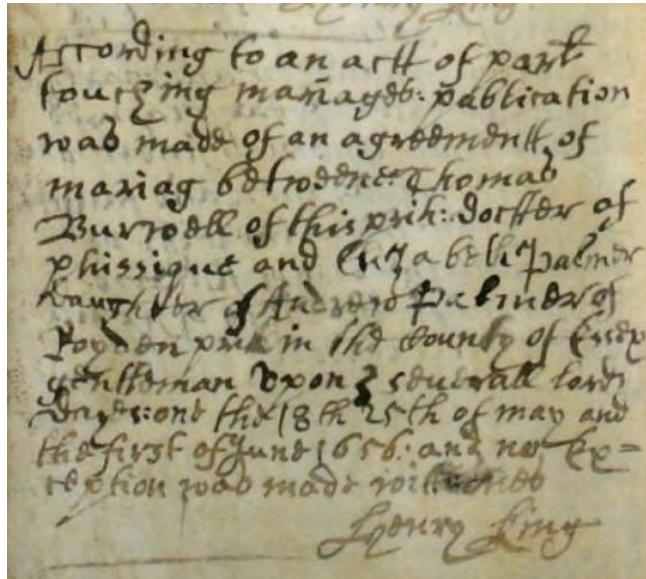 Henry King
According to an actt of parlt
touching mariages: publication
was made of an agreementt of
mariag betweene: Thomas
Burwell of this prih: doctter of
phissique and Elizabeth Palmer
daughter of Andrew Palmer of
Royden prih in the County of Essex
gentleman Vpon 3 severall lords
dayes: one the 18th 25th of may and
the first of June 1656: and no Ex=
ception was made
Henry King